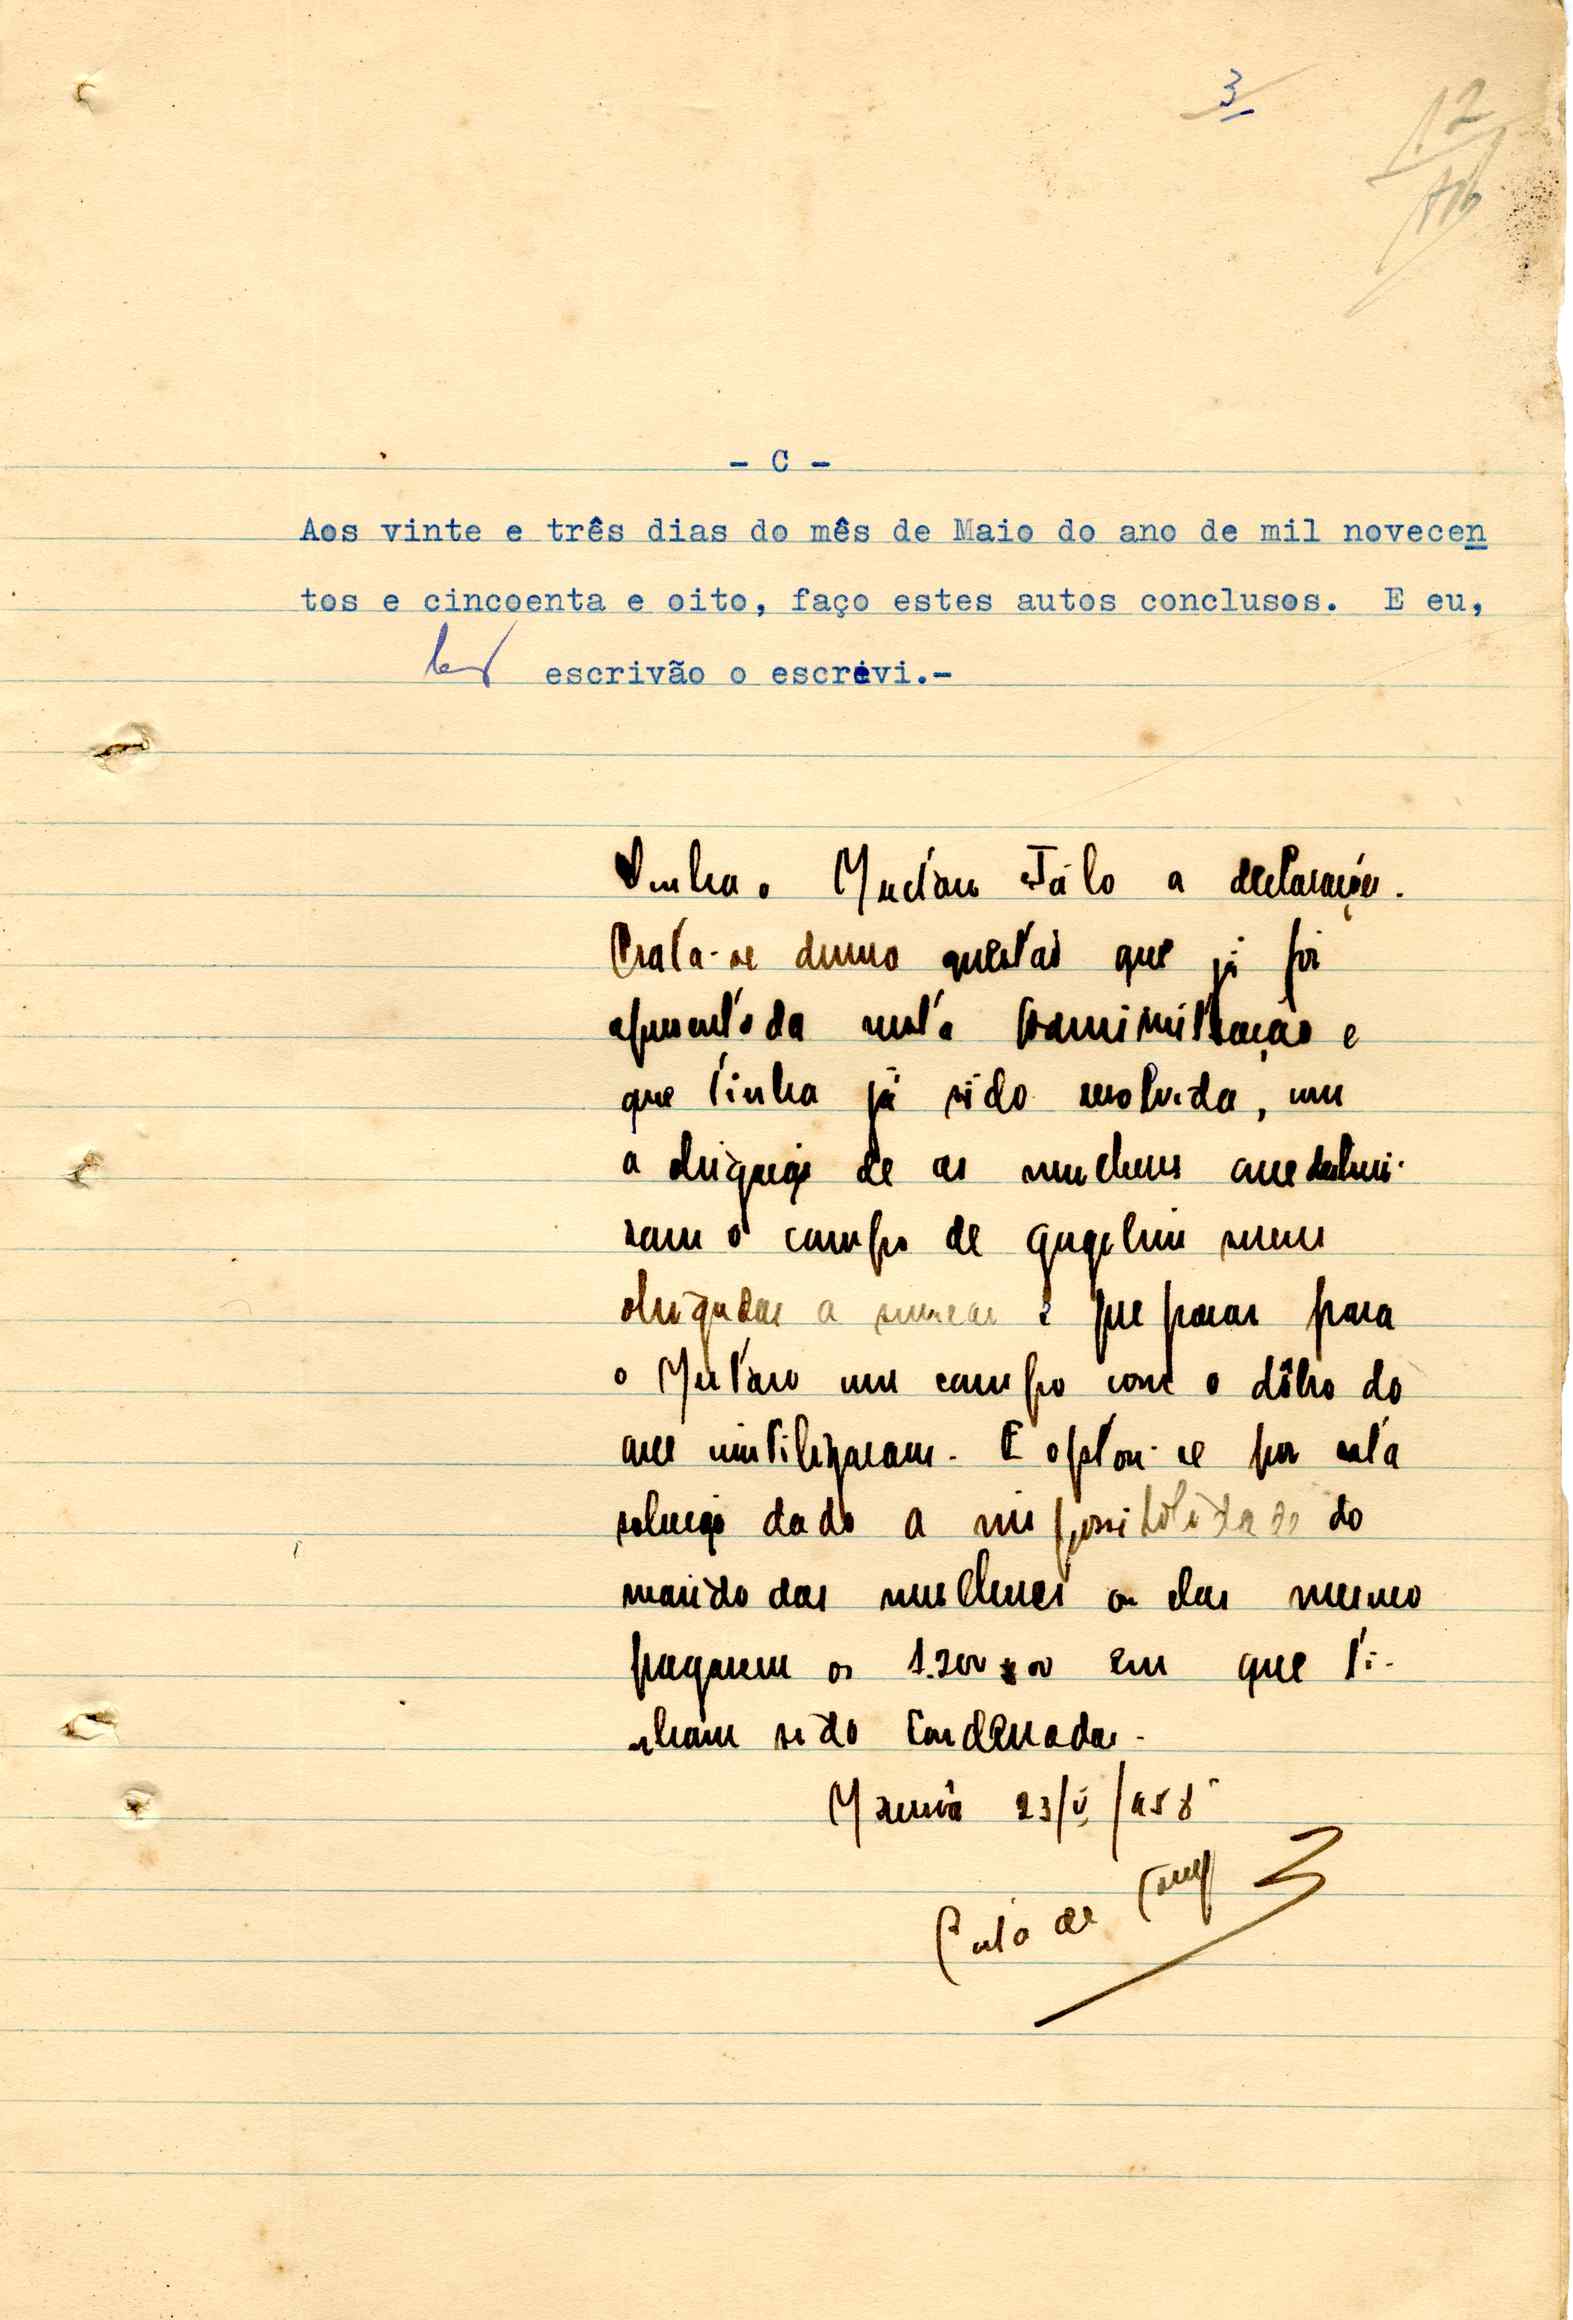 3
12
- C -
Aos vinte e três dias do mês de Maio do ano de mil novecen
tos e cincoenta e oito, faço estes autos conclusos. E eu,
escrivão o escrevi.-
Venha o Jálo a declarações.
Trata-se duma questão que já foi
apresentada nesta Administração e
que tinha já sido resolvida, com
a obrigação de as mulheres que destrui-
ram o campo de serem
obrigadas a semear e preparar para
o um campo com o dôbro do
que inutilizaram. E optou-se por esta
solução dado a impossibilidade do
marido das mulheres ou elas mesmo
pagarem os 1.200$00 em que ti-
nham sido condenadas.
23/V/958